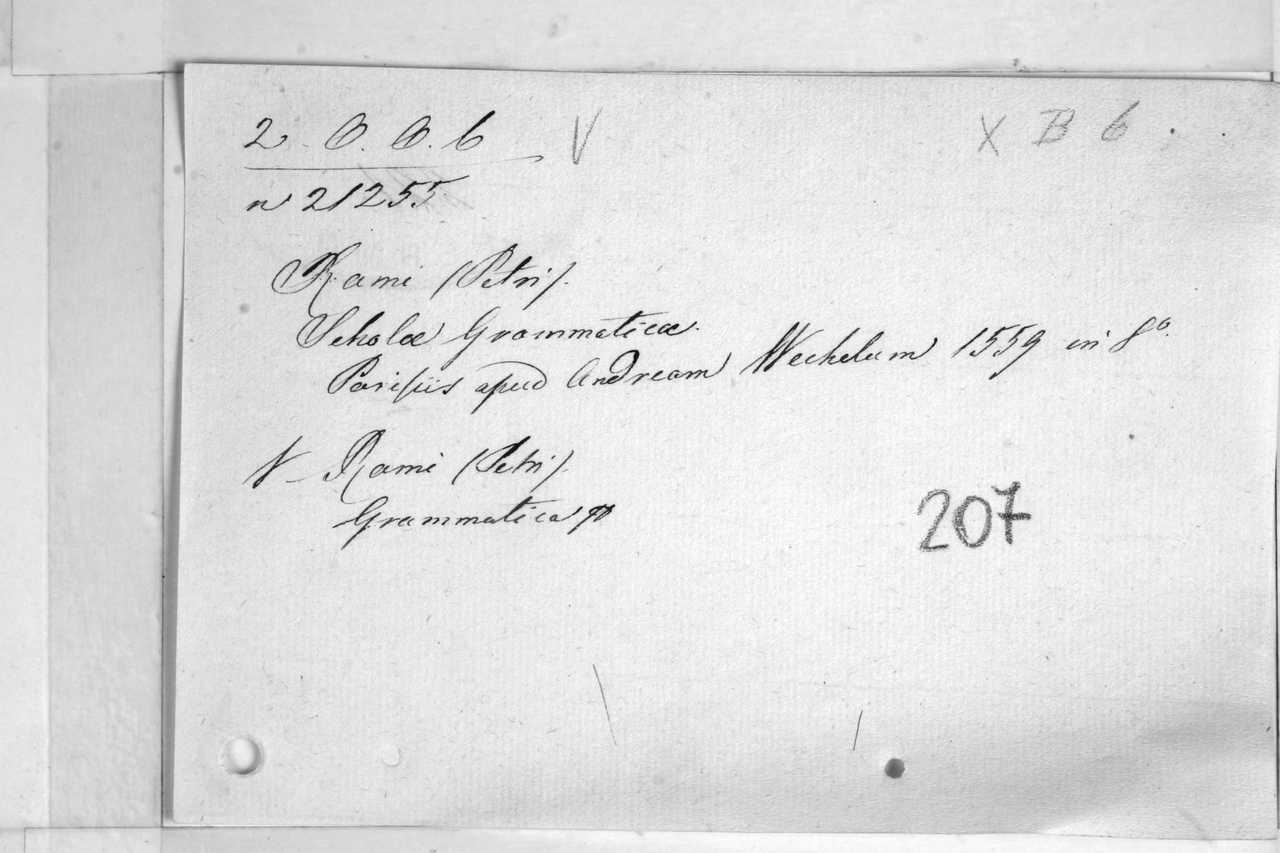 2. O. O. 6 V X B 6.
n 21255
Rami (Petri).
Scholæ Grammaticæ.
Parisiis apud Andream Wechelum 1559 in 8º.
V– Rami (Petri).
Grammatica
207